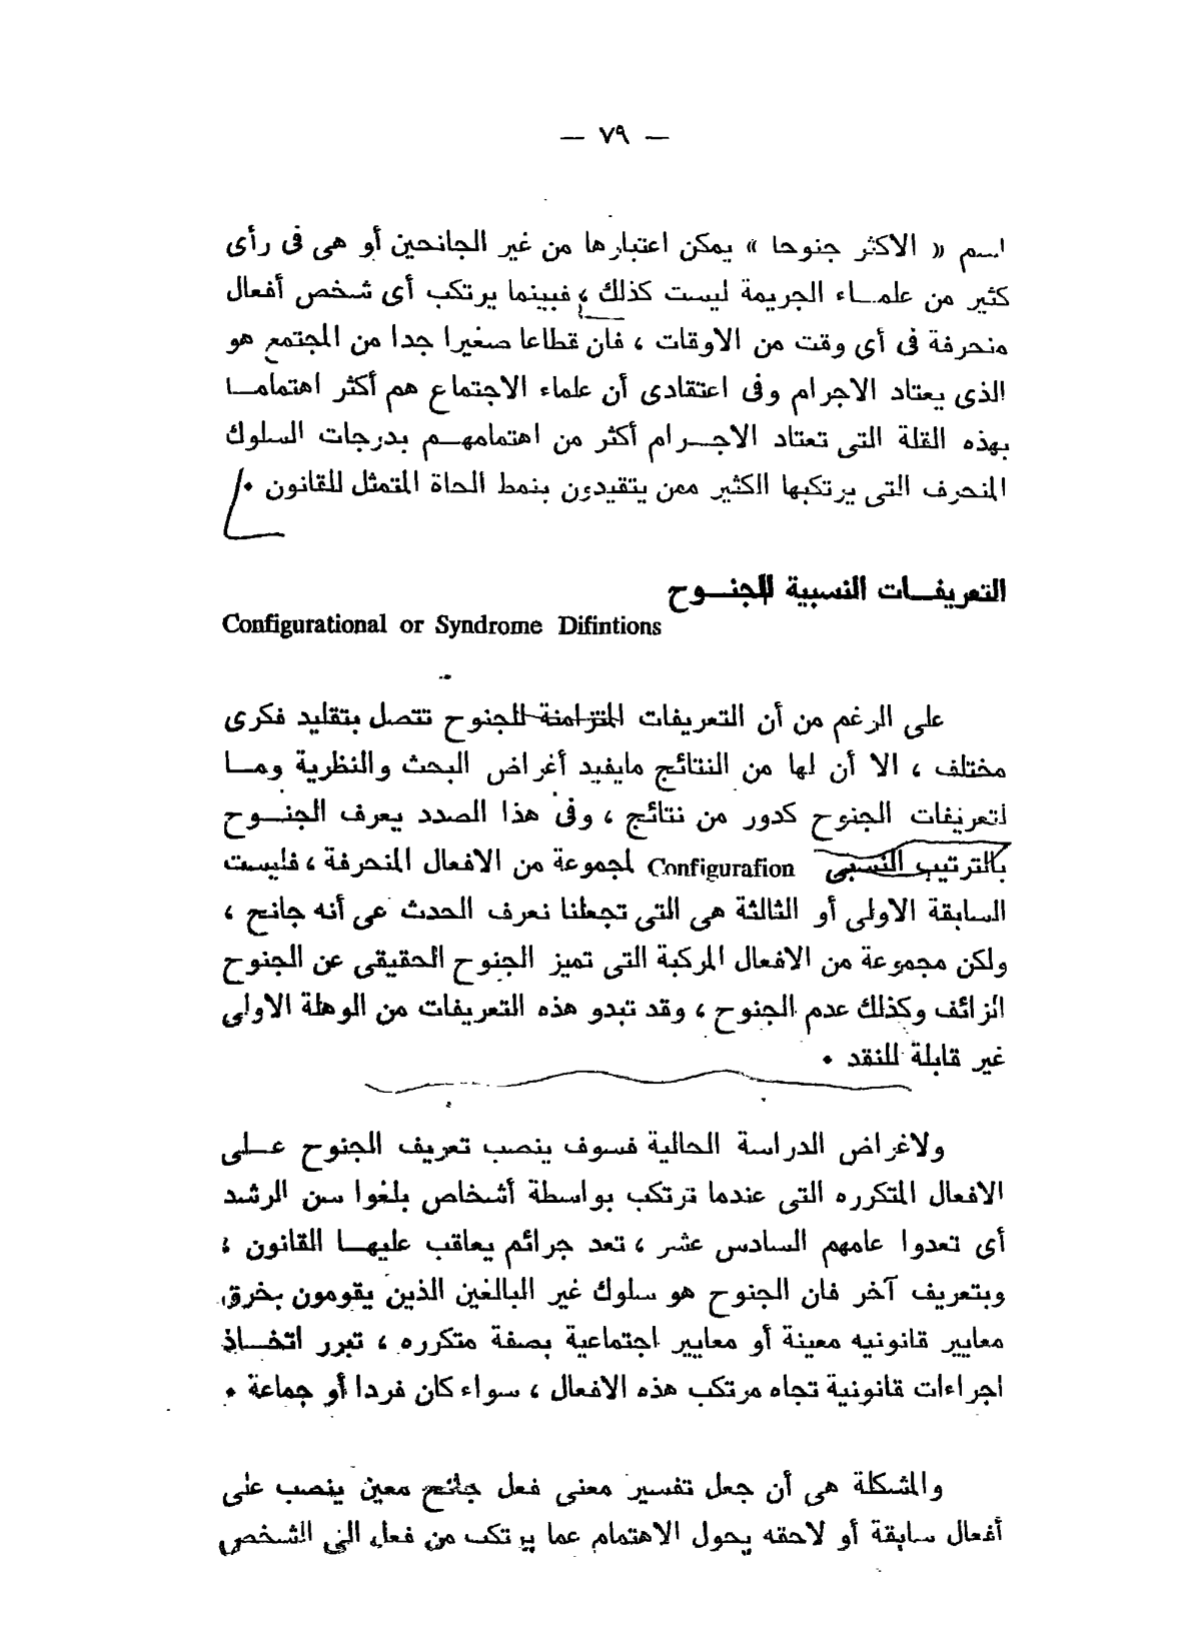 — ٧٩ —
اسم « الاكثر جنوحا » يمكن اعتبارها من غير الجانحين أو هى فى رأى
كثير من علمـاء الجريمة ليست كذلك ، فبينما يرتكب أى شخص أفعال
منحرفة فى أى وقت من الاوقات ، فان قطاعا صغيرا جدا من المجتمع هو
الذى يعتاد الاجرام وفى اعتقادى أن علماء الاجتماع هم أكثر اهتمامـا
بهذه القلة التى تعتاد الاجـرام أكثر من اهتمامهـم بدرجات السلوك
المنحرف التى يرتكبها الكثير ممن يتقيدون بنمط الحاة المتمثل للقانون ٠
التعريفـات النسبية للجنـوح
Configurational or Syndrome Difintions
على الرغم من أن التعريفات المتزامنة للجنوح تتصل بتقليد فكرى
مختلف ، الا أن لها من النتائج مايفيد أغراض البحث والنظرية ومـا
لتعريفات الجنوح كدور من نتائج ، وفى هذا الصدد يعرف الجنـوح
بالترتيب النسبى Configurafion لمجموعة من الافعال المنحرفة ، فليست
السابقة الاولى أو الثالثة هى التى تجعلنا نعرف الحدث عى أنه جانح ،
ولكن مجموعة من الافعال المركبة التى تميز الجنوح الحقيقى عن الجنوح
الزائف وكذلك عدم الجنوح ، وقد تبدو هذه التعريفات من الوهلة الاولى
غير قابلة للنقد ٠
ولاغراض الدراسة الحالية فسوف ينصب تعريف الجنوح عـلى
الافعال المتكرره التى عندما ترتكب بواسطة أشخاص بلغوا سن الرشد
أى تعدوا عامهم السادس عشر ، تعد جرائم يعاقب عليهـا القانون ؛
وبتعريف آخر فان الجنوح هو سلوك غير البالغين الذين يقومون بخرق
معايير قانونيه معينة أو معايير اجتماعية بصفة متكرره ، تبرر اتخـاذ
اجراءات قانونية تجاه مرتكب هذه الافعال ، سواء كان فردا أو جماعة ٠
والمشكلة هى أن جعل تفسير معنى فعل جانح معين ينصب على
أفعال سابقة أو لاحقه يحول الاهتمام عما يرتكب من فعل الى الشخص